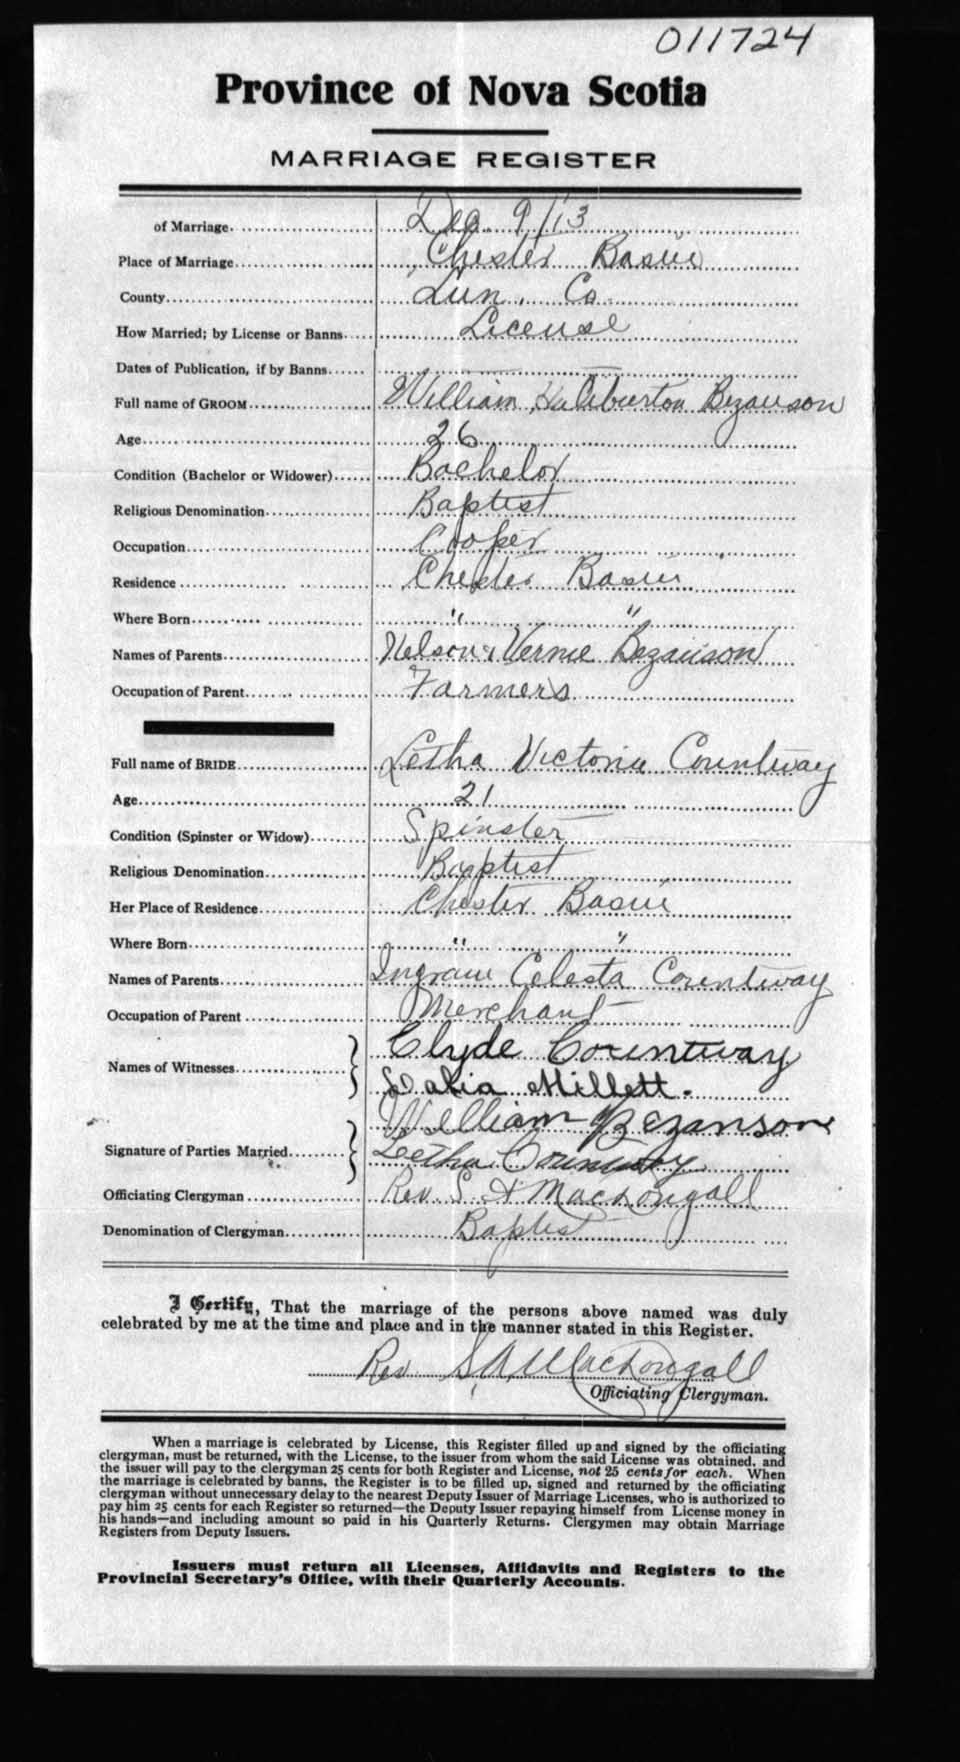 011724
Province of Nova Scotia
MARRIAGE REGISTER
of Marriage Dec. 9/13
Place of Marriage Chester Basin
County Lun. Co.
How Married; by License or Banns License
Dates of Publication, if by Banns
Full name of GROOM William Haliburton Bezanson
Age 26
Condition (Bachelor or Widower) Bachelor
Religious Denomination Baptist
Occupation Cooper
Residence Chester Basin
Where Born " "
Names of Parents Nelson & Vernie Bezanson
Occupation of Parent Farmers
Full name of BRIDE Letha Victoria Countway
Age 21
Condition (Spinster or Widow) Spinster
Religious Denomination Baptist
Her Place of Residence Chester Basin
Where Born " "
Names of Parents Ingram Celesta Countway
Occupation of Parent Merchant
Names of Witnesses Clyde Countway
Millett.
Signature of Parties Married William Bezanson
Letha Countway
Officiating Clergyman Rev S. A MacDougall
Denomination of Clergyman Baptist
I Certify, That the marriage of the persons above named was duly
celebrated by me at the time and place and in the manner stated in this Register.
Rev. S. A MacDougall
Officiating Clergyman.
When a marriage is celebrated by License, this Register filled up and signed by the officiating
clergyman, must be returned, with the License, to the issuer from whom the said License was obtained, and
the issuer will pay to the clergyman 25 cents for both Register and License, not 25 cents for each. When
the marriage is celebrated by banns, the Register is to be filled up, signed and returned by the officiating
clergyman without unnecessary delay to the nearest Deputy Issuer of Marriage Licenses, who is authorized to
pay him 25 cents for each Register so returned—the Deputy Issuer repaying himself from License money in
his hands—and including amount so paid in his Quarterly Returns. Clergymen may obtain Marriage
Registers from Deputy Issuers.
Issuers must return all Licenses, Affidavits and Registers to the
Provincial Secretary's Office, with their Quarterly Accounts.